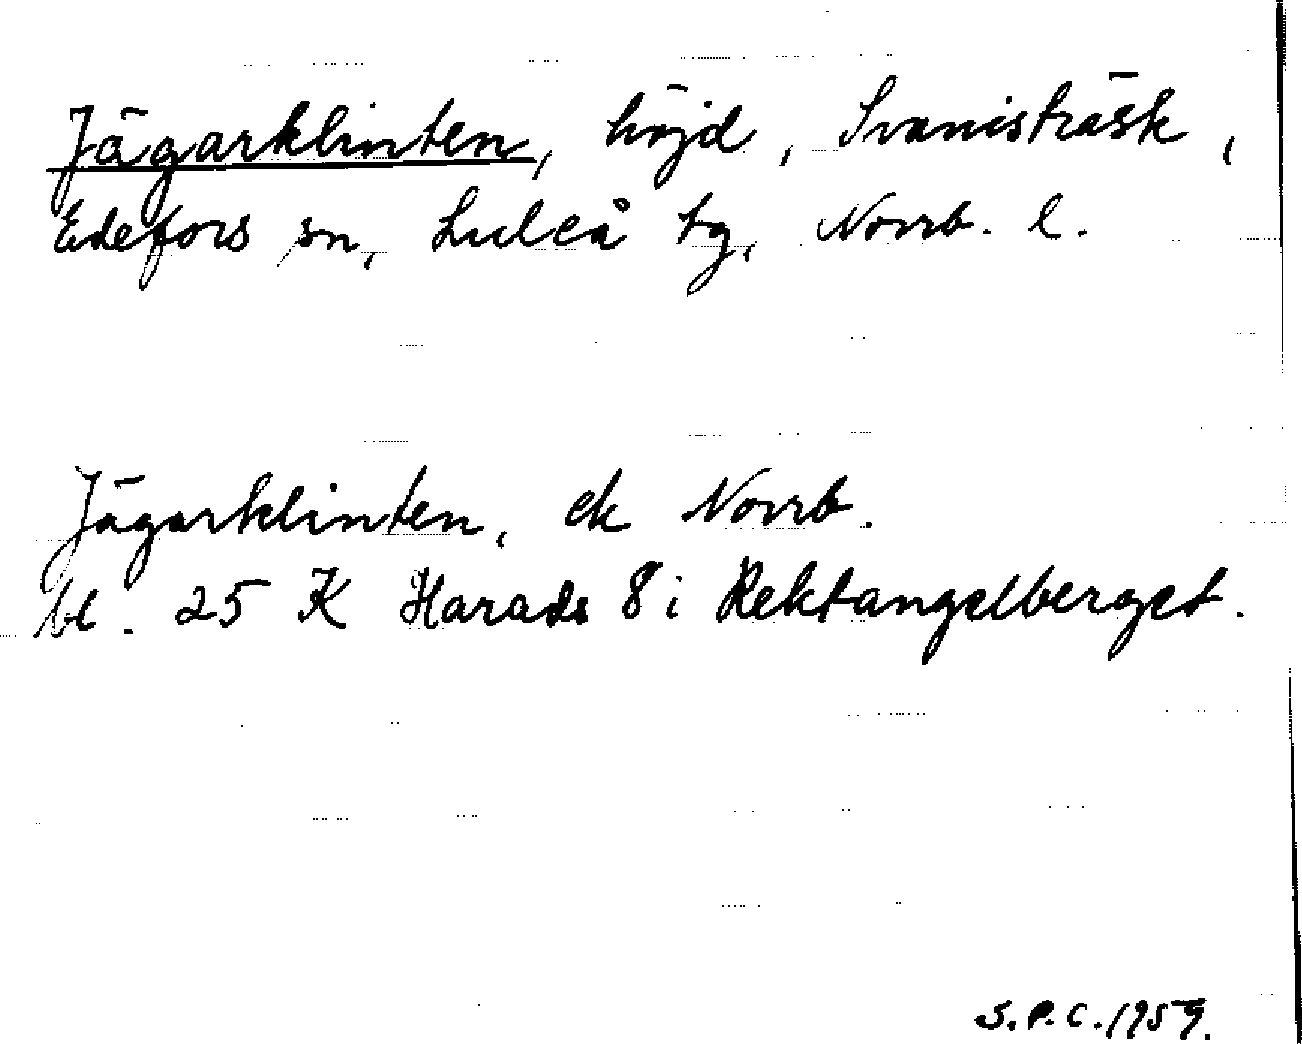 Jägarklinten, höjd, Svanisträsk,
Edefors sn, Luleå tg, Norrb. l.
Jägarklinten, ek Norrb.
bl. 25 K Harads 8 i Rektangelberget.
S.P.C. 1959.